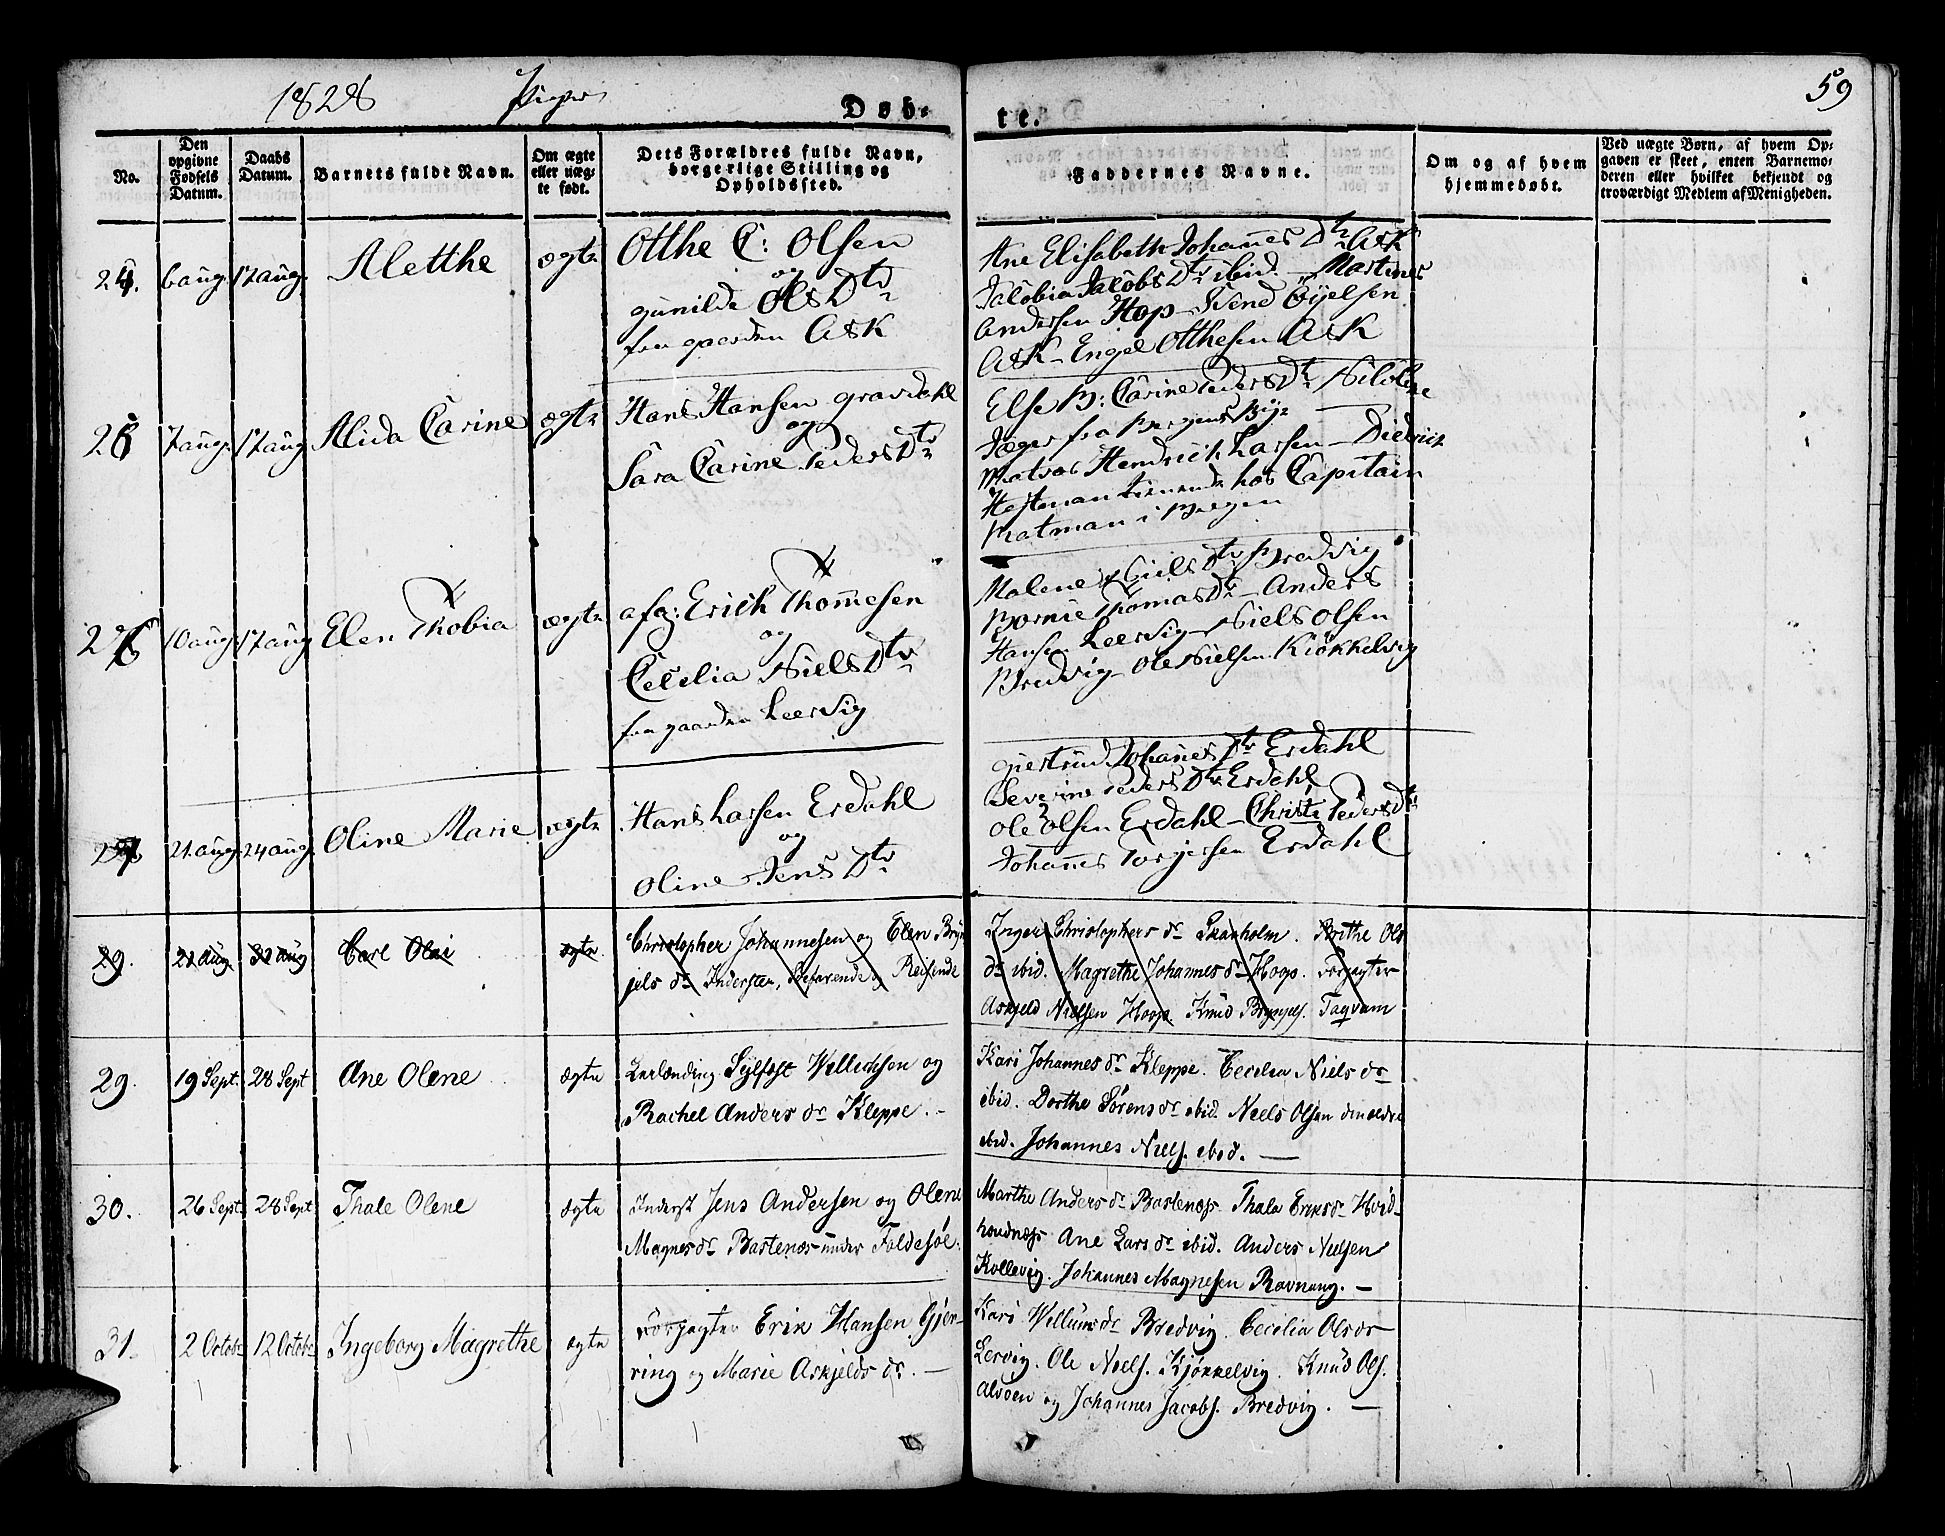 1828 Piger Døb- te. 59
No.
Den opgivne Fødsels Datum.
Daabs Datum.
Barnets fulde Navn.
Om ægte eller uæg- te født.
Dets Forældres fulde Navn, borgerlige Stilling og Opholdssted.
Faddernes Navne.
Om og af hvem hjemmedøbt.
Ved uægte Børn, af hvem Op-
gaven er skeet, enten Barnemo-
deren eller hvilket bekjendt og
troværdigt Medlem af Menigheden.
24. 6 aug. 17 aug. Aletthe ægte
Otthe C: Olsen
og
gunilde Ols Dtr
fra gaarden Ask
Ane Elisabeth Johanes Dtr Ask
Jacobia Jacobs Dtr ibid. – Martines
Andersen Hop – Svend
Ask – Engel Otthesen Ask
7 aug. 17 aug Alida Carine ægte
Hans Hansen gravdahl
og
Sara Carine Peders Dtr
Else B: Carine Peders Dtr Nicoline
Jæger fra Bergens Bye – Diedrich
Hendrich Larsen
tienende hos Capitain
i Bergen
10 aug. 17 aug Elen Thobia ægte
afg: Erich Thomesen
og
Cecilia Niels Dtr
fra gaarden Leervig
Malene Niels Dtr Bredvig
Thomas Dtr – Anders
Hansen Leervig – Niels Olsen
Bredvig – Ole Nielsen Kiøkkelvig
21. aug. 24 aug. Oline Marie ægte
Hans Larsen Erdahl
og
Oline Jens Dtr
giertrud Johanes Dtr Erdahl
Severine Peders Dtr Erdahl
Ole Olsen Erdahl – Christi Peders Dtr
Johanes Torgersen Erdahl
29. 21 Aug. 31 Aug Carl Olai ægte
Christopher Johannesen og Elen Bryn-
jels dr Indersten, Søefarende, Reisende
Inger Christophers dr Skarholm. Brithe Ols
dr ibid. Magrethe Johannes dr Hoop. Forpagter
Askjeld Nielsen Hoop. Knud Brynjels. Taqvam
29. 19 Sept. 28 Sept Ane Olene ægte
Sylfæst Vellichsen og
Rachel Anders dr Kleppe. –
Kari Johannes dr Kleppe. Cecilia Niels dr
ibid. Dorthe Sørens dr ibid. Neels Olsen den ældre
ibid. Johannes Niels. ibid. —
30. 26 Sept. 28 Sept Thale Olene ægte
Inderst Jens Andersen og Olene
Magnes dr Bastenæs under Foldesøe.
Marthe Anders dr Bastenæs. Thala Eriks dr Hvid-
hovdnæs. Ane Lars dr ibid. Anders Nielsen
Kollevig. Johannes Magnesen Ravnang. –
31. 2 Octobr 12 Octobr Ingeborg Magrethe ægte
Forpagter Erik Hansen Gjer-
ring og Marie Askjelds dr. —
Kari Vellums dr Bredvig. Cecilia Ols dr
Lervig. Ole Neels. Kjøkkelvig. Knud Ols.
Alvøen og Johannes Jacobs. Bredvig. —